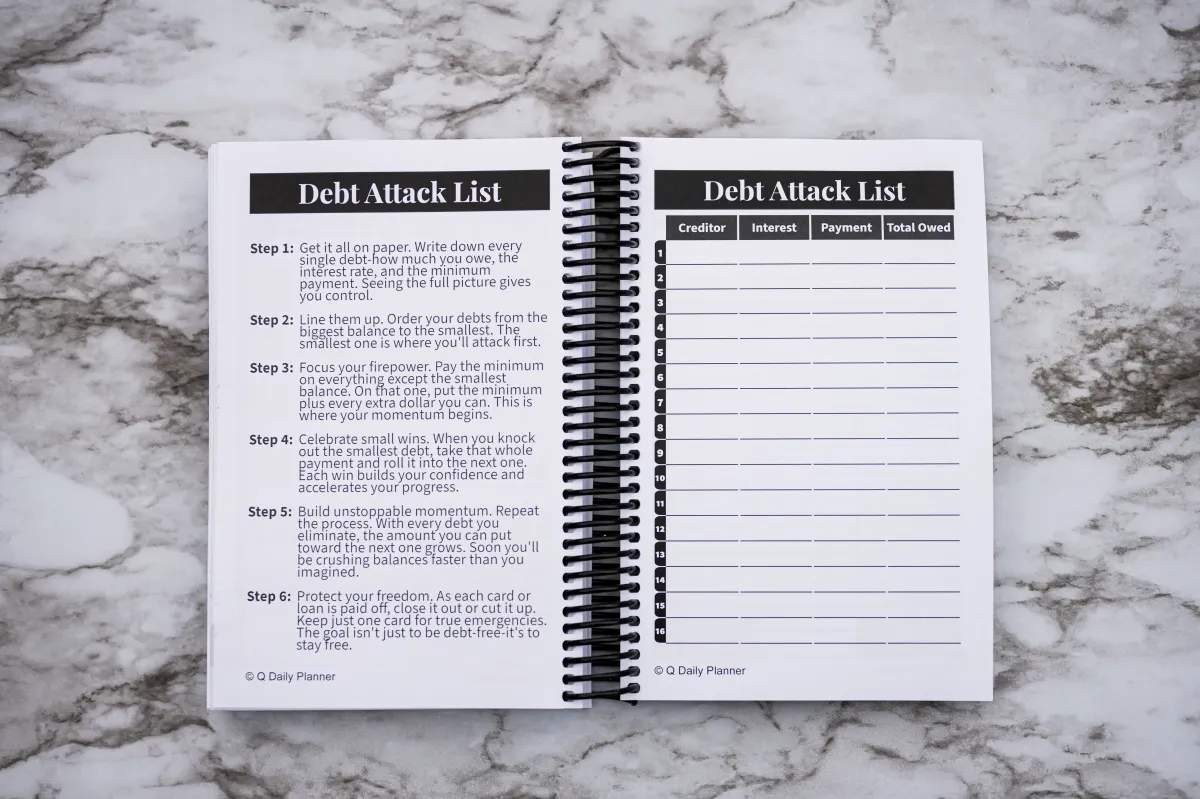 Debt Attack List
Step 1: Get it all on paper. Write down every
single debt-how much you owe, the
interest rate, and the minimum
payment. Seeing the full picture gives
you control.
Step 2: Line them up. Order your debts from the
biggest balance to the smallest. The
smallest one is where you'll attack first.
Step 3: Focus your firepower. Pay the minimum
on everything except the smallest
balance. On that one, put the minimum
plus every extra dollar you can. This is
where your momentum begins.
Step 4: Celebrate small wins. When you knock
out the smallest debt, take that whole
payment and roll it into the next one.
Each win builds your confidence and
accelerates your progress.
Step 5: Build unstoppable momentum. Repeat
the process. With every debt you
eliminate, the amount you can put
toward the next one grows. Soon you'll
be crushing balances faster than you
imagined.
Step 6: Protect your freedom. As each card or
loan is paid off, close it out or cut it up.
Keep just one card for true emergencies.
The goal isn't just to be debt-free-it's to
stay free.
© Q Daily Planner
Debt Attack List
Creditor Interest Payment Total Owed
1
2
3
4
5
6
7
8
9
10
11
12
13
14
15
16
© Q Daily Planner